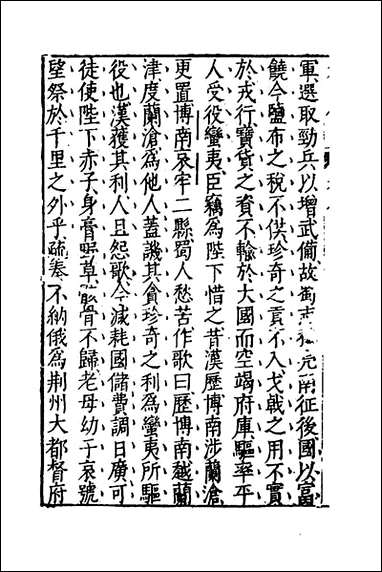 軍選取勁兵以增武備故蜀志稱亮南征後國以富
饒今鹽布之稅不供珍奇之貢不入戈戟之用不實
於戎行寶貨之資不輸於大國而空竭府庫驅率平
人受役蠻夷臣竊為陛下惜之昔漢歷博南涉蘭滄
更置博南哀牢二縣蜀人愁苦作歌曰歷博南越蘭
津度蘭滄為他人蓋譏其貪珍奇之利為蠻夷所驅
役也漢獲其利人且怨歌今減耗國儲費調日廣可
徒使陛下赤子身膏野草骸骨不歸老母幼子哀號
望祭於千里之外乎疏奏不納俄為荆州大都督府